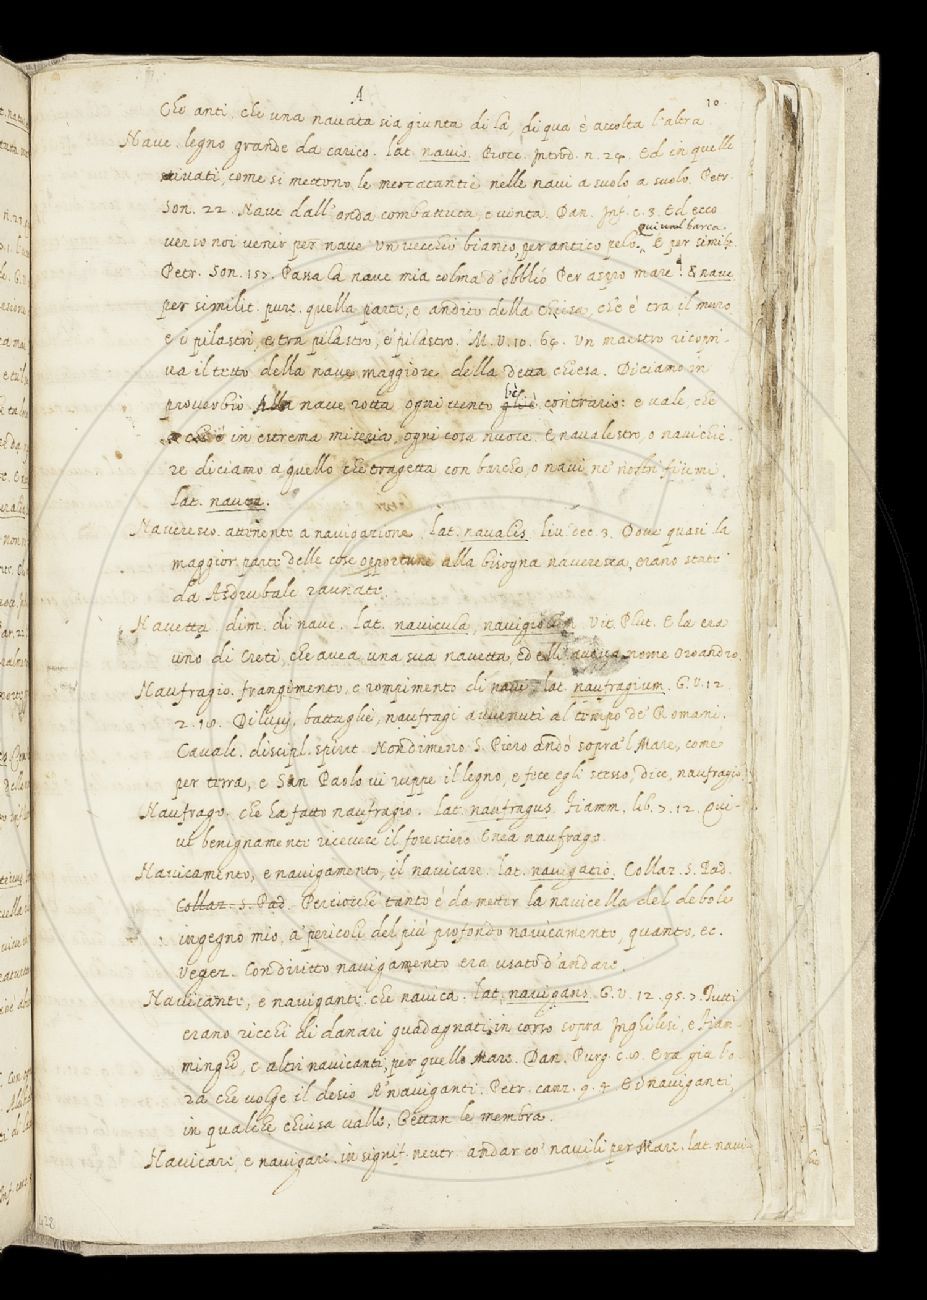 A
10
Che anti, che una navata sia giunta di là, di qua è accolta l'altra.
Nave. legno grande da carico. lat. navis. Bocc. Introd. n. 24. Ed in quelle
stivati, come si mettono le mercatantie nelle navi a suolo a suolo. Petr.
Son. 22. Nave dall'onda combattuta, e vinta. Dan. Inf. c. 3. Ed ecco
qui val barca
verso noi venir per nave Un vecchio bianco, per antico pelo. E per similit.
Petr. Son. 157. Passa la nave mia colma d'obblio Per aspro mare. E nave
per similit. pure. quella parte, e andito della chiesa, che è tra il muro
e i pilastri, e tra pilastro, e pilastro. M. V. 10. 64. Un maestro ricopri-
va il tetto della nave maggiore della detta chiesa. Diciamo in
proverbio Alla nave rotta ogni vento contrario: e vale, che
in estrema miseria, ogni cosa nuoce. E navalestro, o navichie-
re diciamo a quello che tragetta con barche, o navi ne nostri fiumi.
lat. nauta.
Naveresco. attinente a navigazione. lat. navalis. Liv. dec. 3. Dove quasi la
maggior parte delle cose opportune alla bisogna naveresca, erano state
da Asdrubale raunate.
Navetta dim. di nave. lat. navicula, Vit. Plut. E la era
uno di Creti, che avea una sua navetta, ed nome Oroandro.
Naufragio. frangimento, e rompimento di navi. lat. naufragium. G. V. 12.
2. 10. Diluvj, battaglie, naufragi avvenuti al tempo de Romani.
Cavalc. discipl. spirit. Nondimeno S. Piero andò sopra 'l Mare, come
per terra, e San Paolo vi ruppe il legno, e fece egli stesso, dice, naufragio.
Naufrago. che ha fatto naufragio. lat. naufragus. Fiamm. lib. 7. 12. Qui-
vi benignamente ricevere il forestiero Enea naufrago.
Navicamento, e navigamento, il navicare. lat. navigatio. Collaz. S. Pad.
Collaz. S. Pad. Perciocchè tanto è da mettir la navicella del debole
ingegno mio, a' pericoli del più profondo navicamento, quanto, ec.
Vegez. Con diritto navigamento era usato d'andare.
Navicante, e navigante. che navica. lat. navigans. G. V. 12. 95. 7. Tutti
erano ricchi di danari guadagnati in corso sopra Inghilesi, e Fiam-
minghi, e altri navicanti per quello Mare. Dan. Purg. c. 8. Era già l'o-
ra che volge il desio A' naviganti. Petr. canz. 9. 4. E i naviganti,
in qualche chiusa valle, Gettan le membra.
Navicare, e navigare. in signif. neutr. andar co' navili per Mare. lat. navi-
428